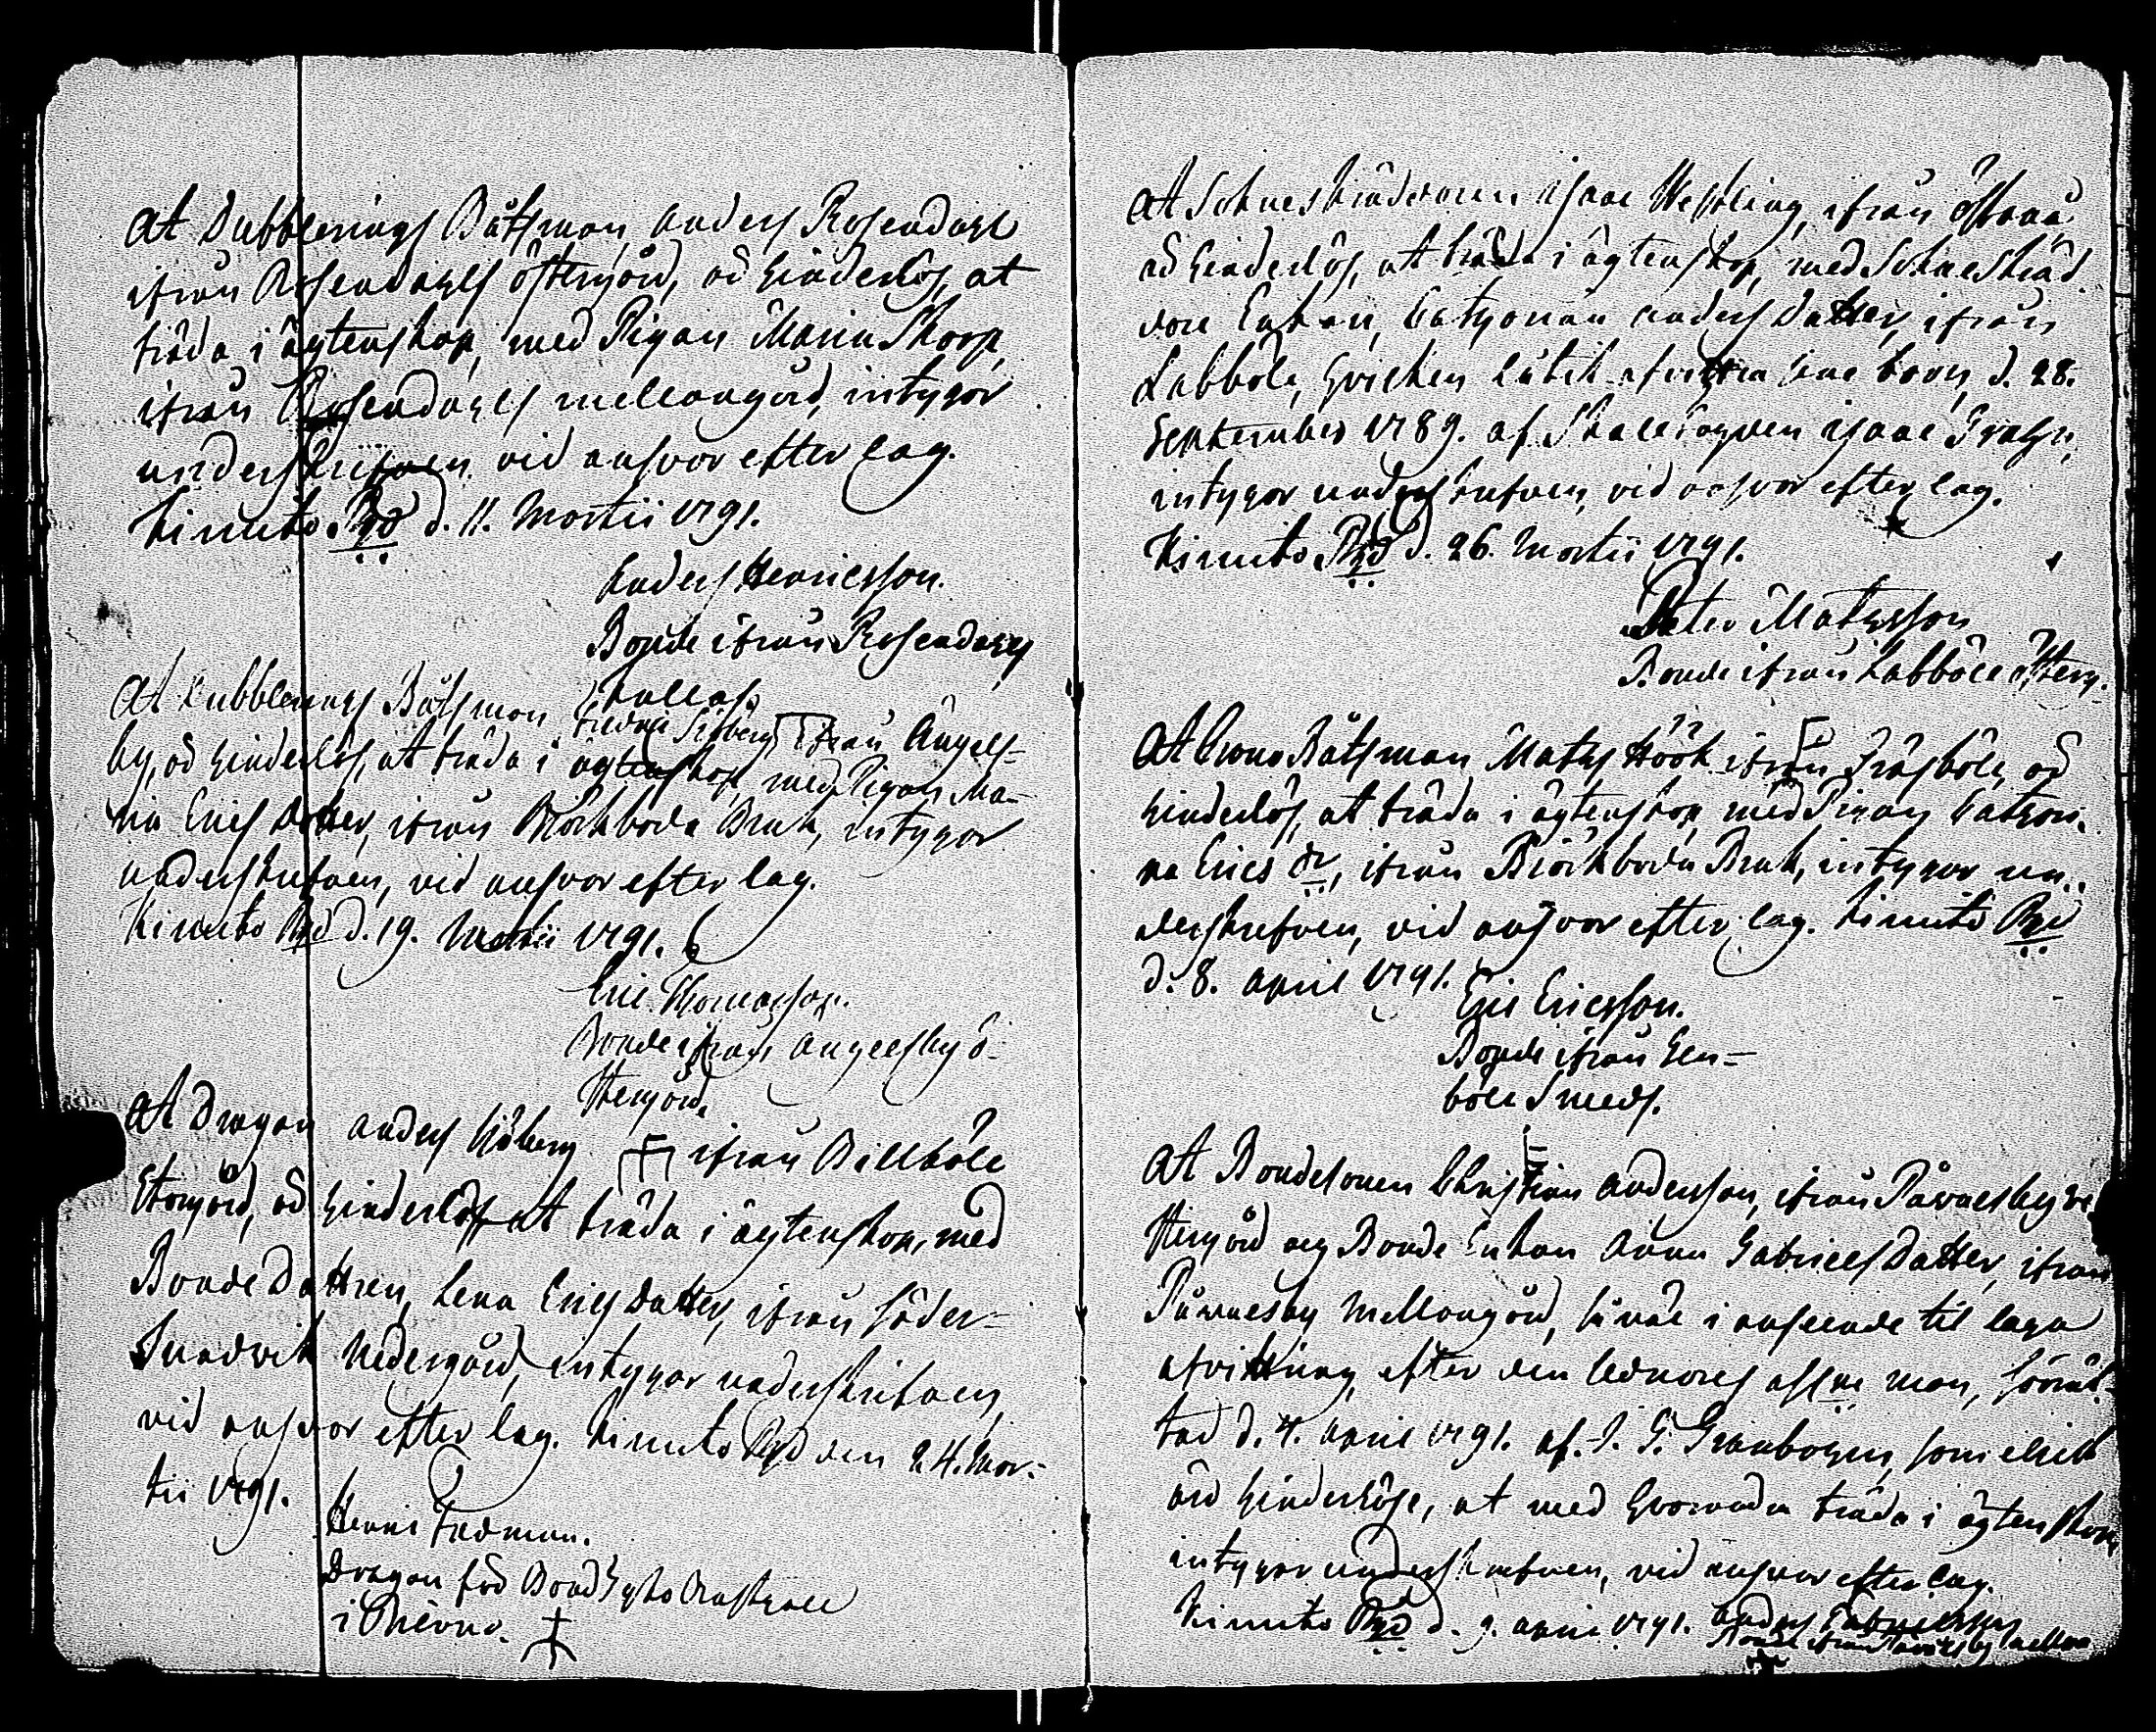 At Dubblerings Båtsman Anders Rosendahl
ifrån Rosendahls östergård, är hinderlös, at
träda i ägtenskap, med Pigan Maria Skorp,
ifrån Rosendahls mellangård, intygar
underskrifven, vid answar efter lag.
Kimito Pgd d. 11. Martii 1791.
Anders Henricsson.
Bonde ifrån Rosendahls
Kullas.
At Dubblerings Båtsman Fredric Siöberg ifrån Ängels-
by, är hinderlös, at träda i ägtenskap, med Pigan Ma-
ria Erics dotter, ifrån Björkboda Bruk, intygar
underskrefven, vid answar efter lag.
Kimito Pgd d. 19. Martii 1791.
Eric Thomasson.
Bonde ifrån Angelsby ö-
stergård.
At Dragon Anders Siöberg ifrån Billböle
Storgård, är hinderlös at träda i ägtenskap, med
Bonde Dottren, Lena Erics Dotter, ifrån Söder-
Sundvik Nedergård, intygar underskrifven,
vid answar efter lag. Kimito Pgd den 24. Mar-
tii 1791.
Henric Fredman.
Dragon för
i
At Sohneskräddaren Isaac Westling, ifrån
är hinderlös, at träda i ägtenskap, med Sohneskräd-
dare Enkan, Catharina Anders Dotter, ifrån
Labböle, hvilken låtit afvittra sine barn, d. 28.
September 1789. af Isaac
intygar underskrefven, vid answar efter lag.
Kimito Pgd d. 26. Martii 1791.
Peter Matsson
Bonde ifrån Labböle österg.
At Crono Båtsman Mats Höök ifrån Fräsböle, är
hinderlös, at träda i ägtenskap, med Pigan Cathari-
na Erics dr, ifrån Björkboda Bruk, intygar un-
derskrefven, vid answar efter lag. Kimito Pgd
d. 8. April 1791.
Eric Ericsson.
Bonde ifrån Gen-
böle Smeds.
At Bondesonen Christian Andersson, ifrån Påvalsby ve-
stergård och Bonde Enkan Anna Gabriels Dotter, ifrån
Påvalsby Mellangård, såväl i anseende til laga
afvittring, efter den sednares afledne man, förrät-
tad d. 4. April 1791. af. J. G. som elliest
äro hinderlöse, at med hvarandra träda i ägtenskap,
intygar underskrefven, vid answar efter lag.
Kimito Pgd d. 9. April 1791. Anders Gabrielsson
Bonde ifrån Påvalsby mellan